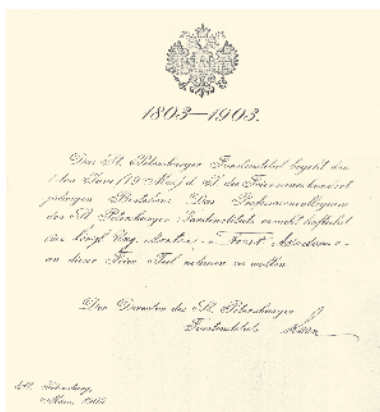 1803—1903.
Das St. Petersburger Forstinstitut begeht den
1-ten Juni (19 Mai) d. J. die Feier seines hundert
jährigen Bestehens. Das Professorencollegium
des St. Petersburger Forstinstituts ersucht höflichst
die Königl. Ung. Forst Academie
an dieser Feier Teil nehmen zu wollen.
Der Director des St. Petersburger
Forstinstituts
St. Petersburg,